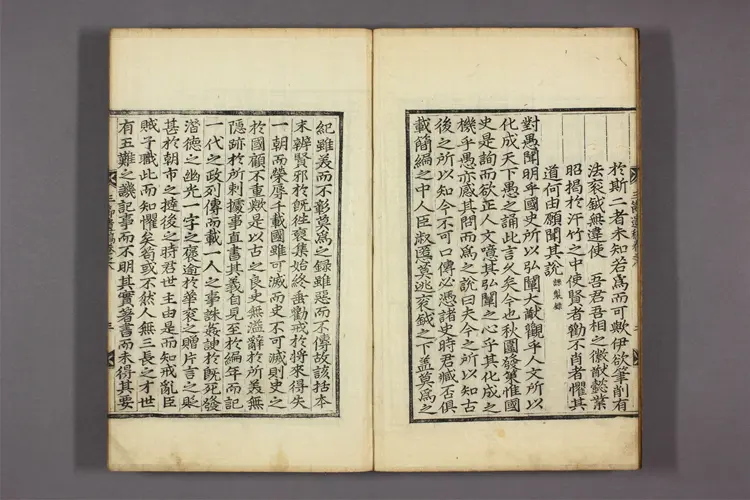 於斯二者未知若爲而可歟伊欲筆削有
法褒鉞無違使 吾君吾相之徽猷懿業
昭揭於汗竹之中使賢者勸不肖者懼其
道何由願聞其說
對愚聞明乎國史所以弘闡大猷觀乎人文所以
化成天下愚之誦此言久矣今也秋圍發策惟國
史是詢而欲正人文噫其弘闡之心乎其化成之
機乎愚亦感其問而爲之說曰夫今之所以知古
後之所以知今不可口傳必憑諸史時君臧否俱
載簡編之中人臣淑慝莫逃袞鉞之下盖莫爲之
紀雖美而不彰莫爲之録雖惡而不傳故該括本
末辨賢邪於旣徃裒集始終垂勸戒於將來得失
一朝而榮辱千載國雖可滅而史不可滅則史之
於國顧不重歟是以古之良史無溢辭於所美無
隱跡於所刺據事直書其義自見至於編年而記
一代之政列傳而載一人之事誅姦諛於旣死發
潛德之幽光一字之褒逾於華袞之贈片言之貶
甚於朝市之撻後之時君世主由是而知戒亂臣
賊子職此而知懼矣苟或不然人無三長之才世
有五難之譏記事而不明其實著書而未得其要